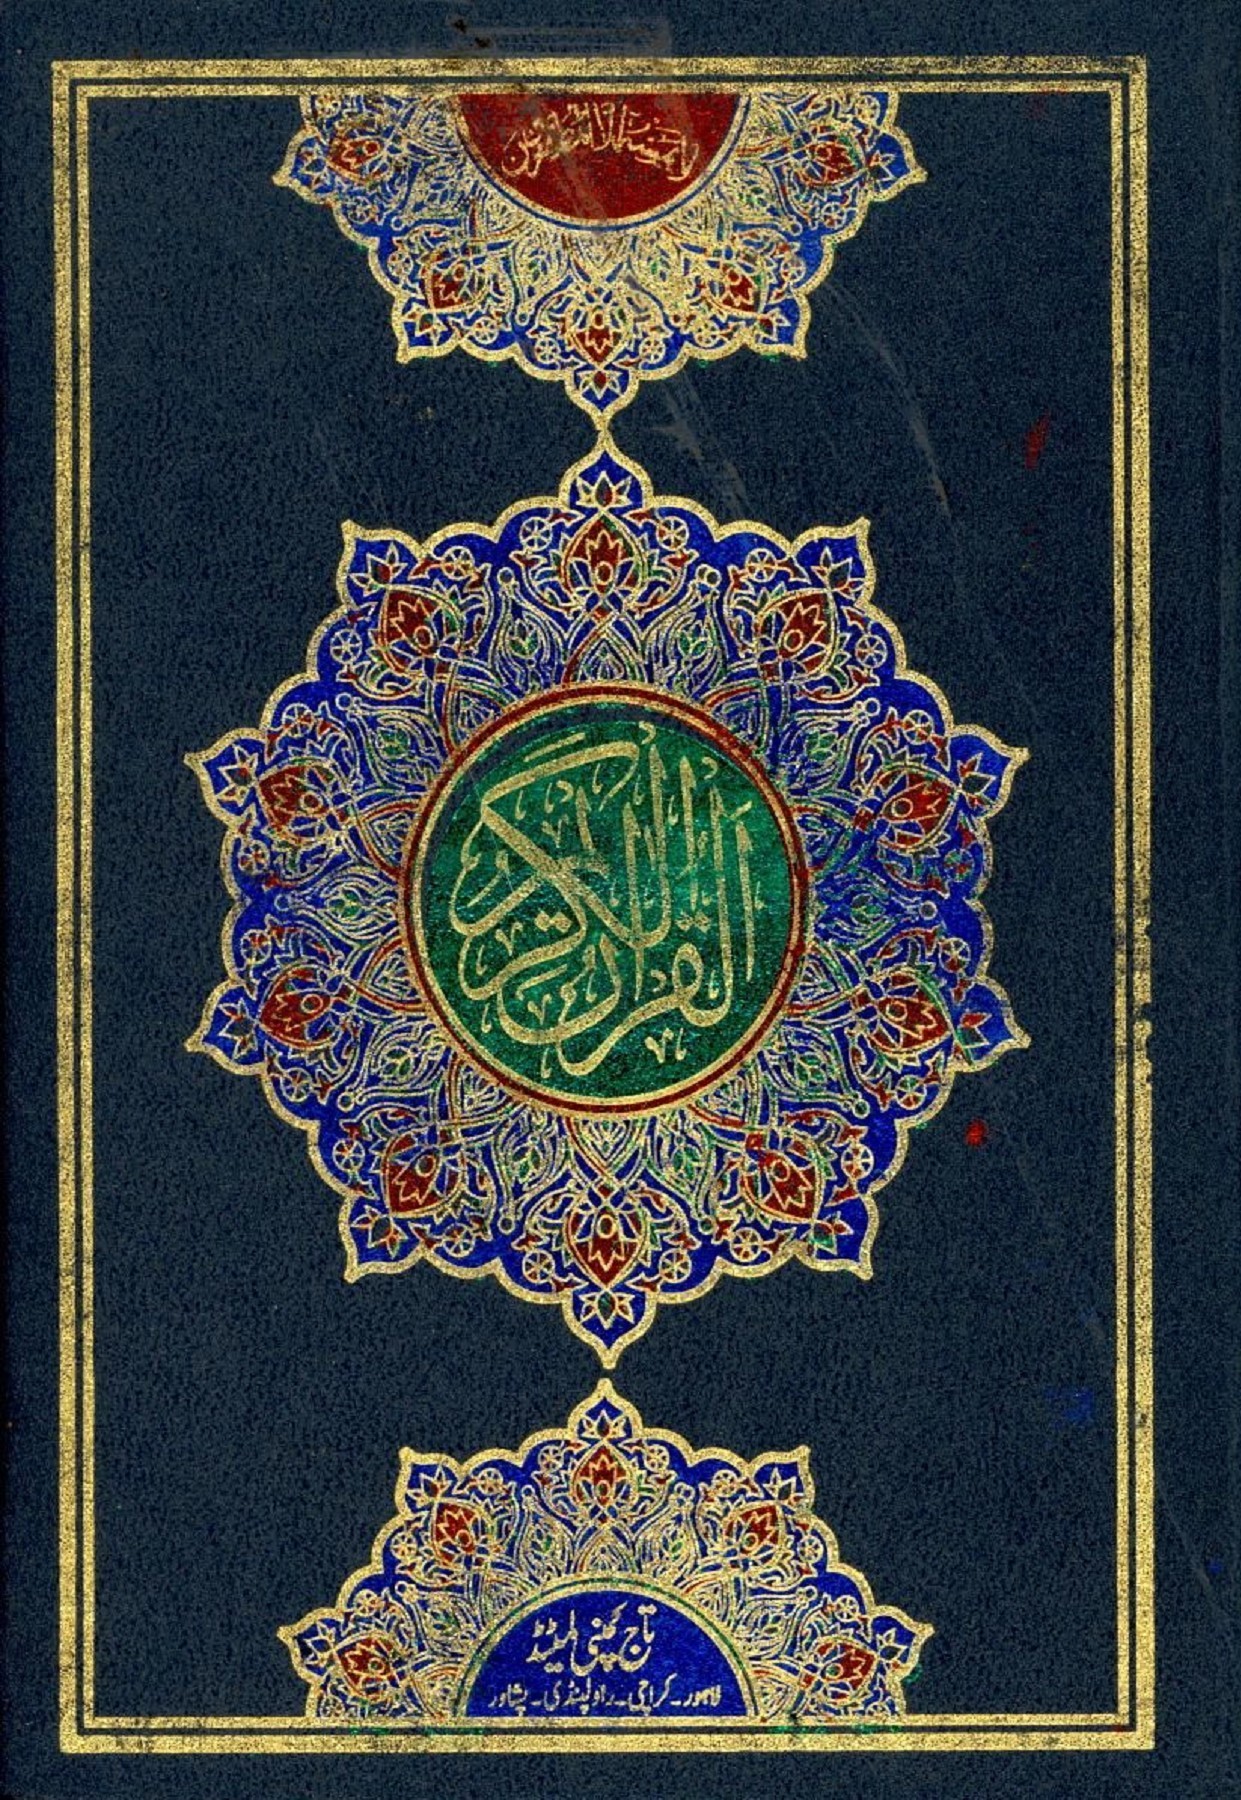 لا يمسه الا المطهرون
القرآن الكريم
تاج کمپنی لمیٹڈ
لاہور - کراچی - راولپنڈی - پشاور